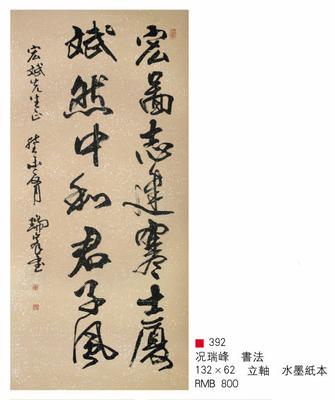 宏啚志建寒士廈
斌然中和君子風
宏斌先生正
瑞峰書
392
况瑞峰 書法
132×62 立軸 水墨紙本
RMB 800